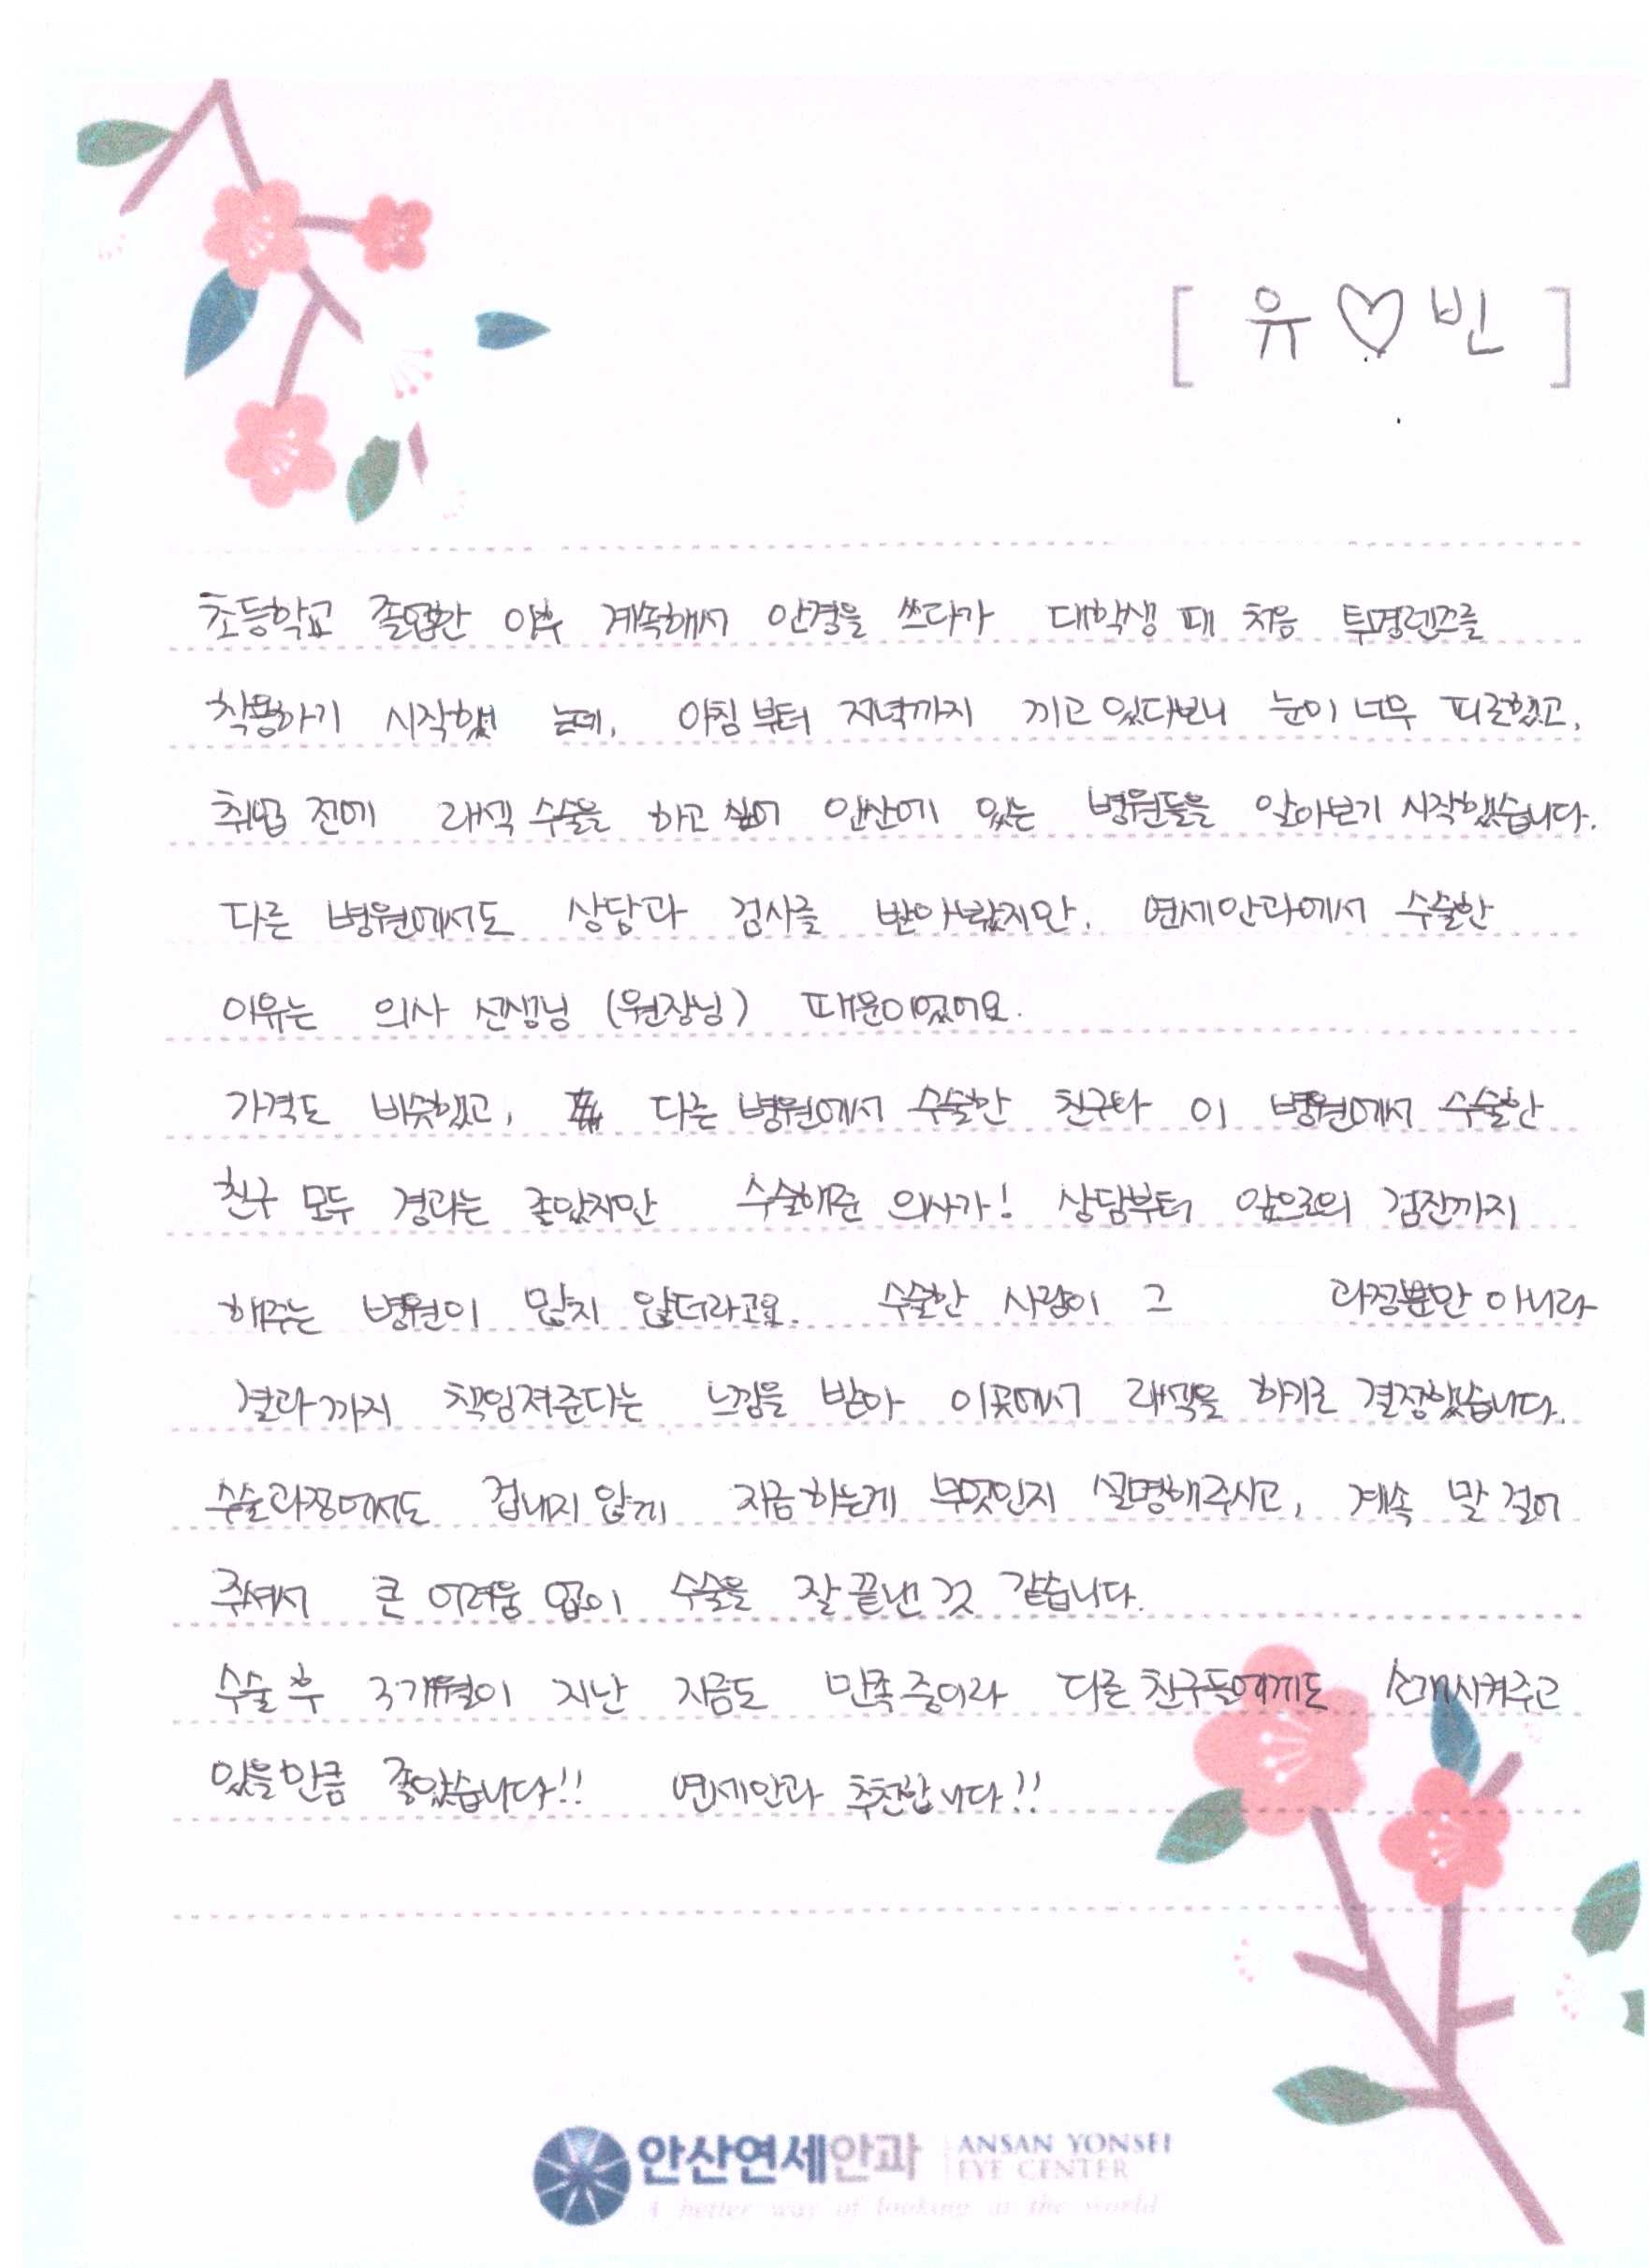 [ 유♡빈 ]
초등학교 졸업한 이후 계속해서 안경을 쓰다가 대학생 때 처음 투명렌즈를
착용하기 시작했는데, 아침부터 저녁까지 끼고 있다보니 눈이 너무 피로했고,
취업 전에 라섹 수술을 하고 싶어 안산에 있는 병원들을 알아보기 시작했습니다.
다른 병원에서도 상담과 검사를 받아봤지만, 연세안과에서 수술한
이유는 의사 선생님 (원장님) 때문이었어요.
가격도 비슷했고, 다른 병원에서 수술한 친구나 이 병원에서 수술한
친구 모두 경과는 좋았지만 수술해준 의사가! 상담부터 앞으로의 검진까지
해주는 병원이 많지 않더라고요. 수술한 사람이 그 과정뿐만 아니라
결과까지 책임져준다는 느낌을 받아 이곳에서 라섹을 하기로 결정했습니다.
수술과정에서도 겁내지 않게 지금하는게 무엇인지 설명해주시고, 계속 말 걸어
주셔서 큰 어려움 없이 수술을 잘 끝낸 것 같습니다.
수술 후 3개월이 지난 지금도 만족 중이라 다른 친구들에게도 소개시켜주고
있을만큼 좋았습니다!! 연세안과 추천합니다!!
안산연세안과 ANSAN YONSEI
EYE CENTER
A better way of looking at the world